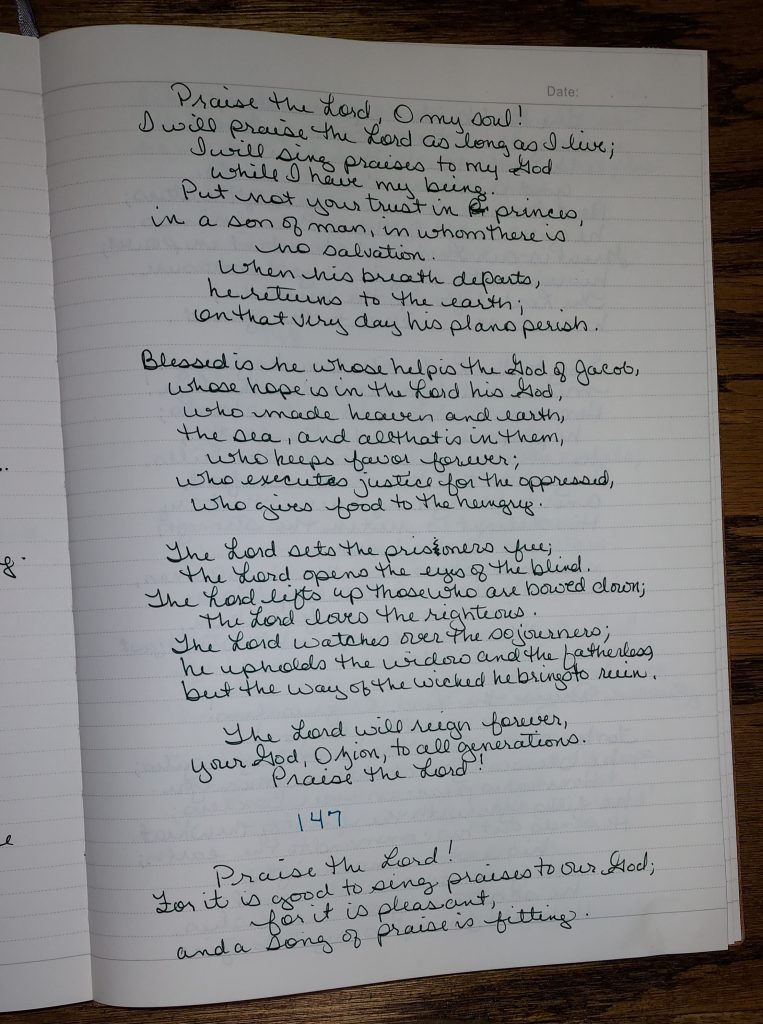 Date:
Praise the Lord, O my soul!
I will praise the Lord as long as I live;
I will sing praises to my God
while I have my being.
Put not your trust in princes,
in a son of man, in whom there is
no salvation.
When his breath departs,
he returns to the earth;
on that very day his plans perish.
Blessed is he whose help is the God of Jacob,
whose hope is in the Lord his God,
who made heaven and earth,
the sea, and all that is in them,
who keeps favor forever;
who executes justice for the oppressed,
who gives food to the hungry.
The Lord sets the prisoners free;
the Lord opens the eyes of the blind.
The Lord lifts up those who are bowed down;
the Lord loves the righteous.
The Lord watches over the sojourners;
he upholds the widow and the fatherless,
but the way of the wicked he brings to ruin.
The Lord will reign forever,
your God, O Zion, to all generations.
Praise the Lord!
147
Praise the Lord!
For it is good to sing praises to our God;
for it is pleasant,
and a song of praise is fitting.